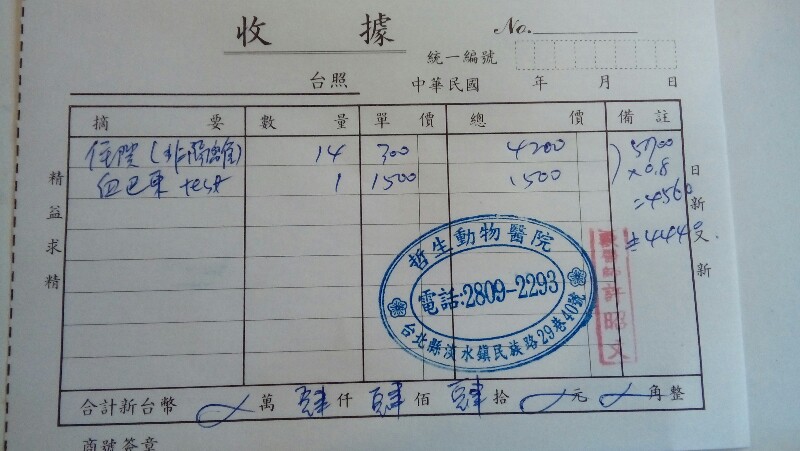 收據
No.
統一編號
台照 中華民國 年 月 日
摘要 數量 單價 總價 備註
住院(非隔離) 14 300 4200 5700
x0.8
血巴東 test 1 1500 1500 =4560
≒4440
精益求精
日新又新
哲生動物醫院
電話:2809-2293
台北縣淡水鎮民族路29巷40號
獸醫師許昭文
合計新台幣 萬 肆仟 肆佰 肆拾 元 角整
商號簽章